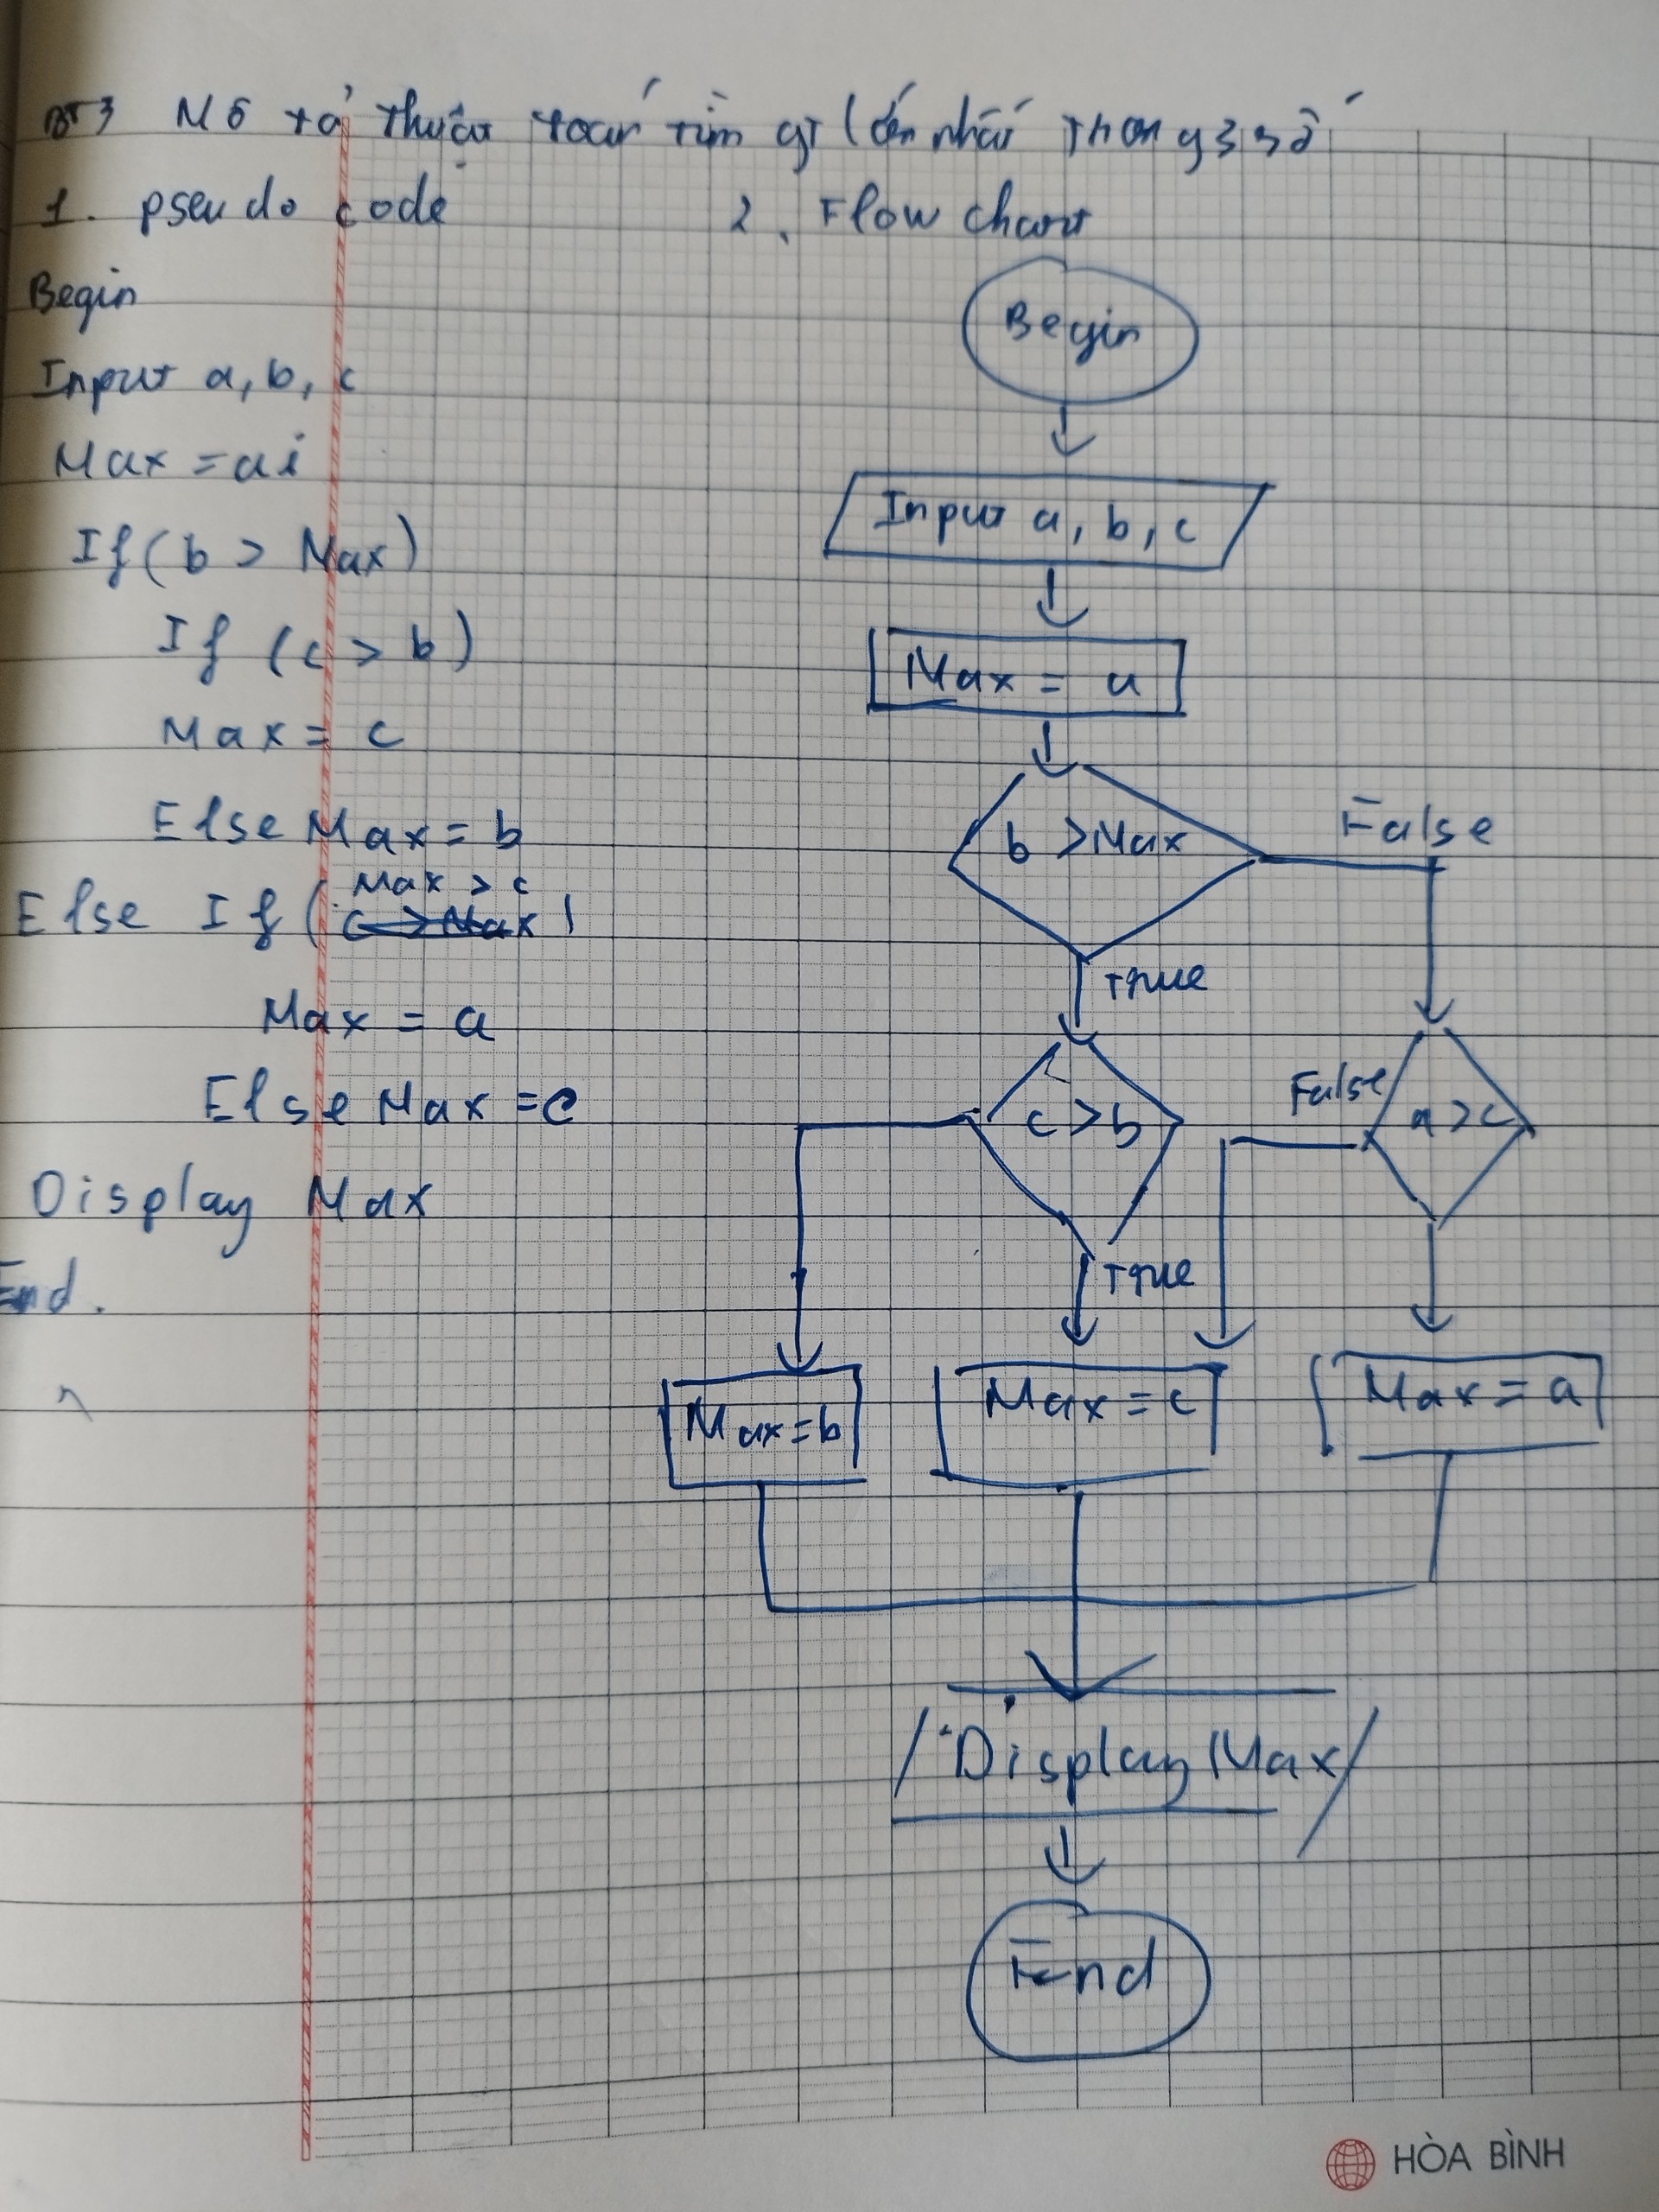 BT3 Mô tả thuật toán tìm gt lớn nhất trong 3 số
1. pseudo code
Begin
Input a, b, c
Max = a;
If (b > Max)
If (c > b)
Max = c
Else Max = b
Max > c
Else If (c > Max)
Max = a
Else Max = c
Display Max
End.
2. Flow chart
Begin
Input a, b, c
Max = a
b > Max
False
True
c > b
False
a > c
True
Max = b
Max = c
Max = a
Display Max
End
HÒA BÌNH